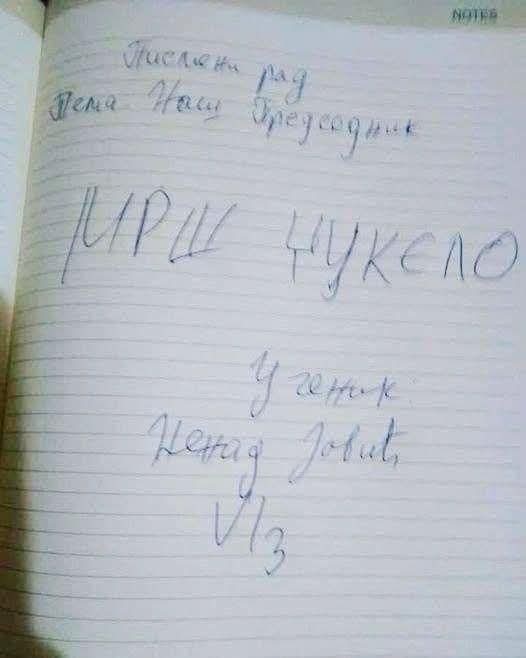 NOTES
Писмени рад
Тема Наш Председник
МРШ ЏУКЕЛО
Ученик
Ненад Јовић
VI3